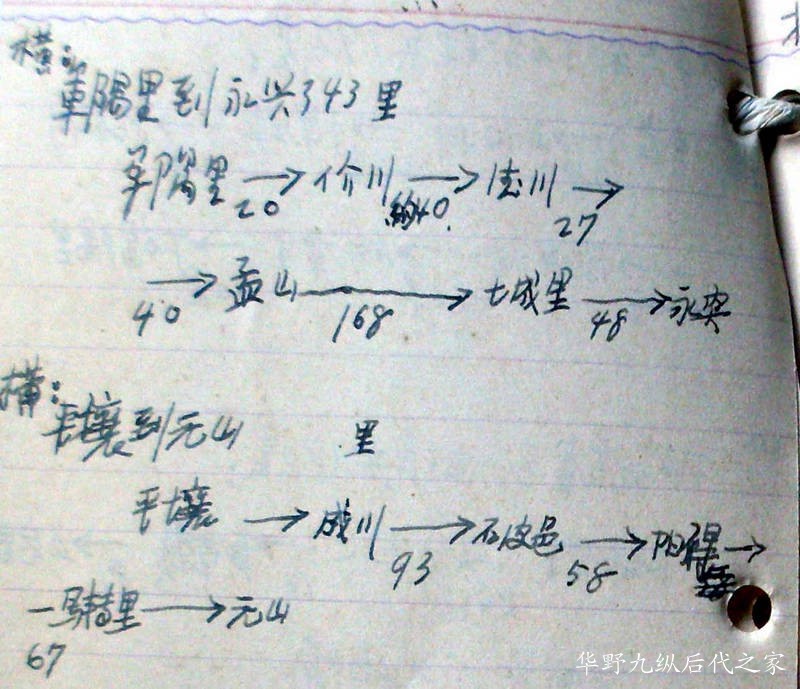 横:
軍隅里到永兴343里
軍隅里 → 价川 → 德川 →
20 约40. 27
→ 孟山 → 七城里 → 永兴
40 168 48
横:
平壤到元山 里
平壤 → 成川 → 石皮邑 → 阳 →
93 58
→ 元山
67
华野九纵后代之家